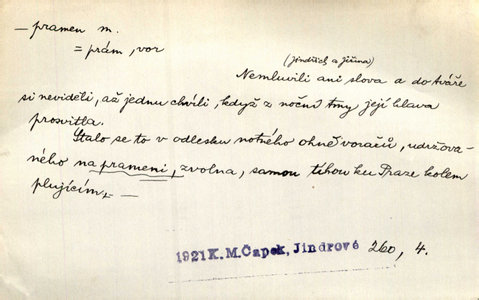 — pramen m.
= prám, vor
(Jindřich a Jiřina)
Nemluvili ani slova a do tváře
si neviděli, až jednu chvíli, když z noční tmy její hlava
prosvitla.
Stalo se to v odlesku notného ohně voračů, udržova-
ného na prameni, zvolna, samou tíhou ku Praze kolem
plujícím, —
1921 K. M. Čapek, Jindrové 260, 4.